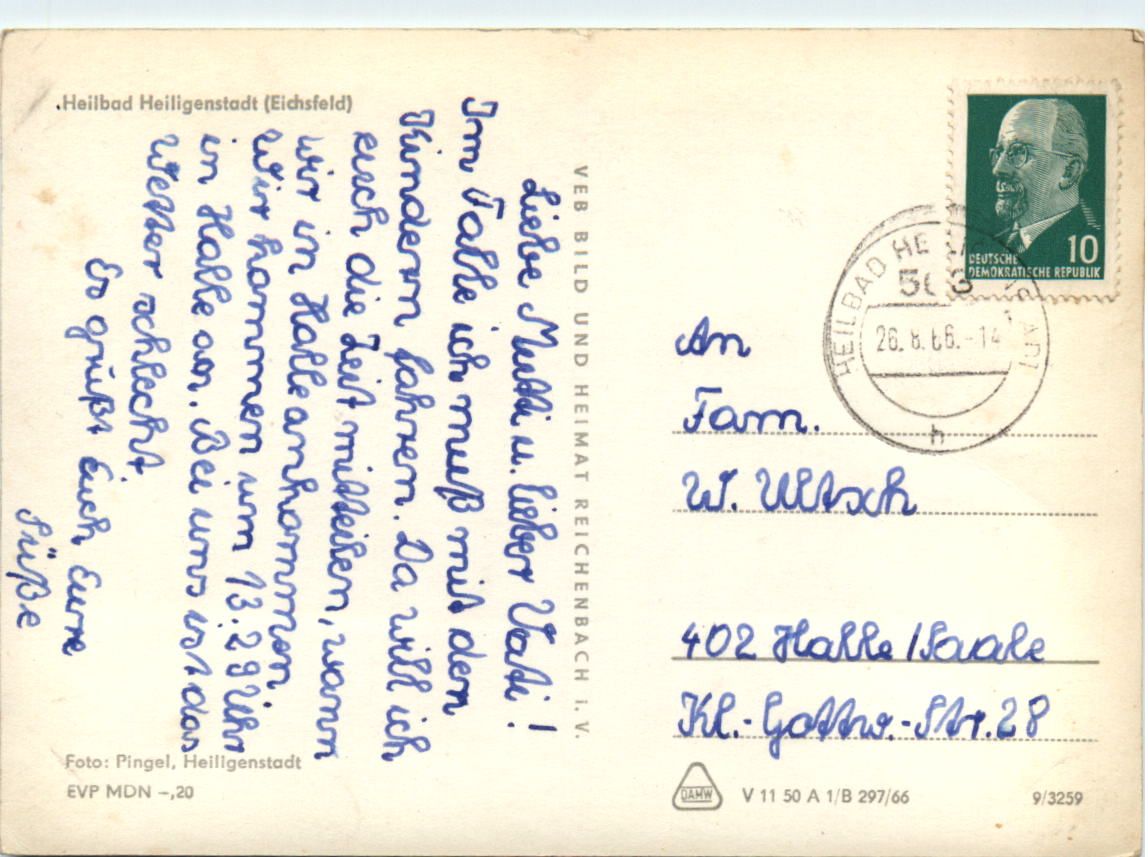 Heilbad Heiligenstadt (Eichsfeld)
Liebe Mutti u. lieber Vati!
Im Falle ich muß mit den
Kindern fahren. Da will ich
euch die Zeit mitteilen, wann
wir in Halle ankommen.
Wir kommen um 13.29 Uhr
in Halle an. Bei uns ist das
Wetter schlecht.
Es grüßt Euch Eure
Süße
Foto: Pingel, Heiligenstadt
EVP MDN -,20
VEB BILD UND HEIMAT REICHENBACH i. V.
10
DEUTSCHE
DEMOKRATISCHE REPUBLIK
HEILBAD HEILIGENSTADT
26.8.66.-14
h
An
Fam.
W. Ultsch
402 Halle/Saale
Kl.-Gottw.-Str. 28
DAMW
V 11 50 A 1/B 297/66
9/3259